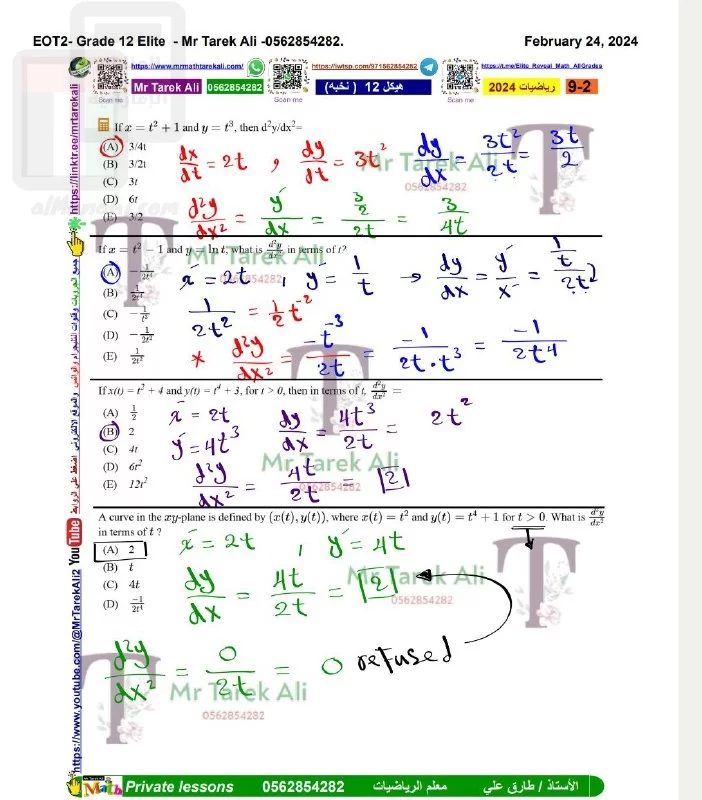 EOT2- Grade 12 Elite - Mr Tarek Ali -0562854282. February 24, 2024
https://www.mrmathtarekali.com/ https://iwtsp.com/971562854282 https://t.me/Elite_Reveal_Math_AllGrades
Mr Tarek Ali 0562854282 هيكل 12 ( نخبه) رياضيات 2024 9-2
Scan me Scan me Scan me
If x = t² + 1 and y = t³, then d²y/dx²=
(A) 3/4t
(B) 3/2t
(C) 3t
(D) 6t
(E) 3/2
dx/dt = 2t , dy/dt = 3t² dy/dx = 3t²/2t = 3t/2
d²y/dx² = y'/dx = 3/2/2t = 3/4t
If x = t² - 1 and y = ln t, what is d²y/dx² in terms of t?
(A) -1/2t⁴
(B) 1/2t⁴
(C) -1/t³
(D) -1/2t²
(E) 1/2t²
x' = 2t , y' = 1/t → dy/dx = y'/x' = 1/t/2t
1/2t² = 1/2 t⁻²
* d²y/dx² = -t⁻³/2t = -1/2t·t³ = -1/2t⁴
If x(t) = t² + 4 and y(t) = t⁴ + 3, for t > 0, then in terms of t, d²y/dx² =
(A) 1/2
(B) 2
(C) 4t
(D) 6t²
(E) 12t²
x' = 2t dy/dx = 4t³/2t = 2t²
y' = 4t³
d²y/dx² = 4t/2t = 2
A curve in the xy-plane is defined by (x(t), y(t)), where x(t) = t² and y(t) = t⁴ + 1 for t > 0. What is d²y/dx²
in terms of t ?
(A) 2
(B) t
(C) 4t
(D) -1/2t⁴
x' = 2t , y' = 4t
dy/dx = 4t/2t = 2
d²y/dx² = 0/2t = 0 refused
Mr Tarek Ali
0562854282
https://linktr.ee/mrtarekali
https://www.youtube.com/@MrTarekAli2 YouTube
Math Private lessons 0562854282 معلم الرياضيات الأستاذ / طارق علي